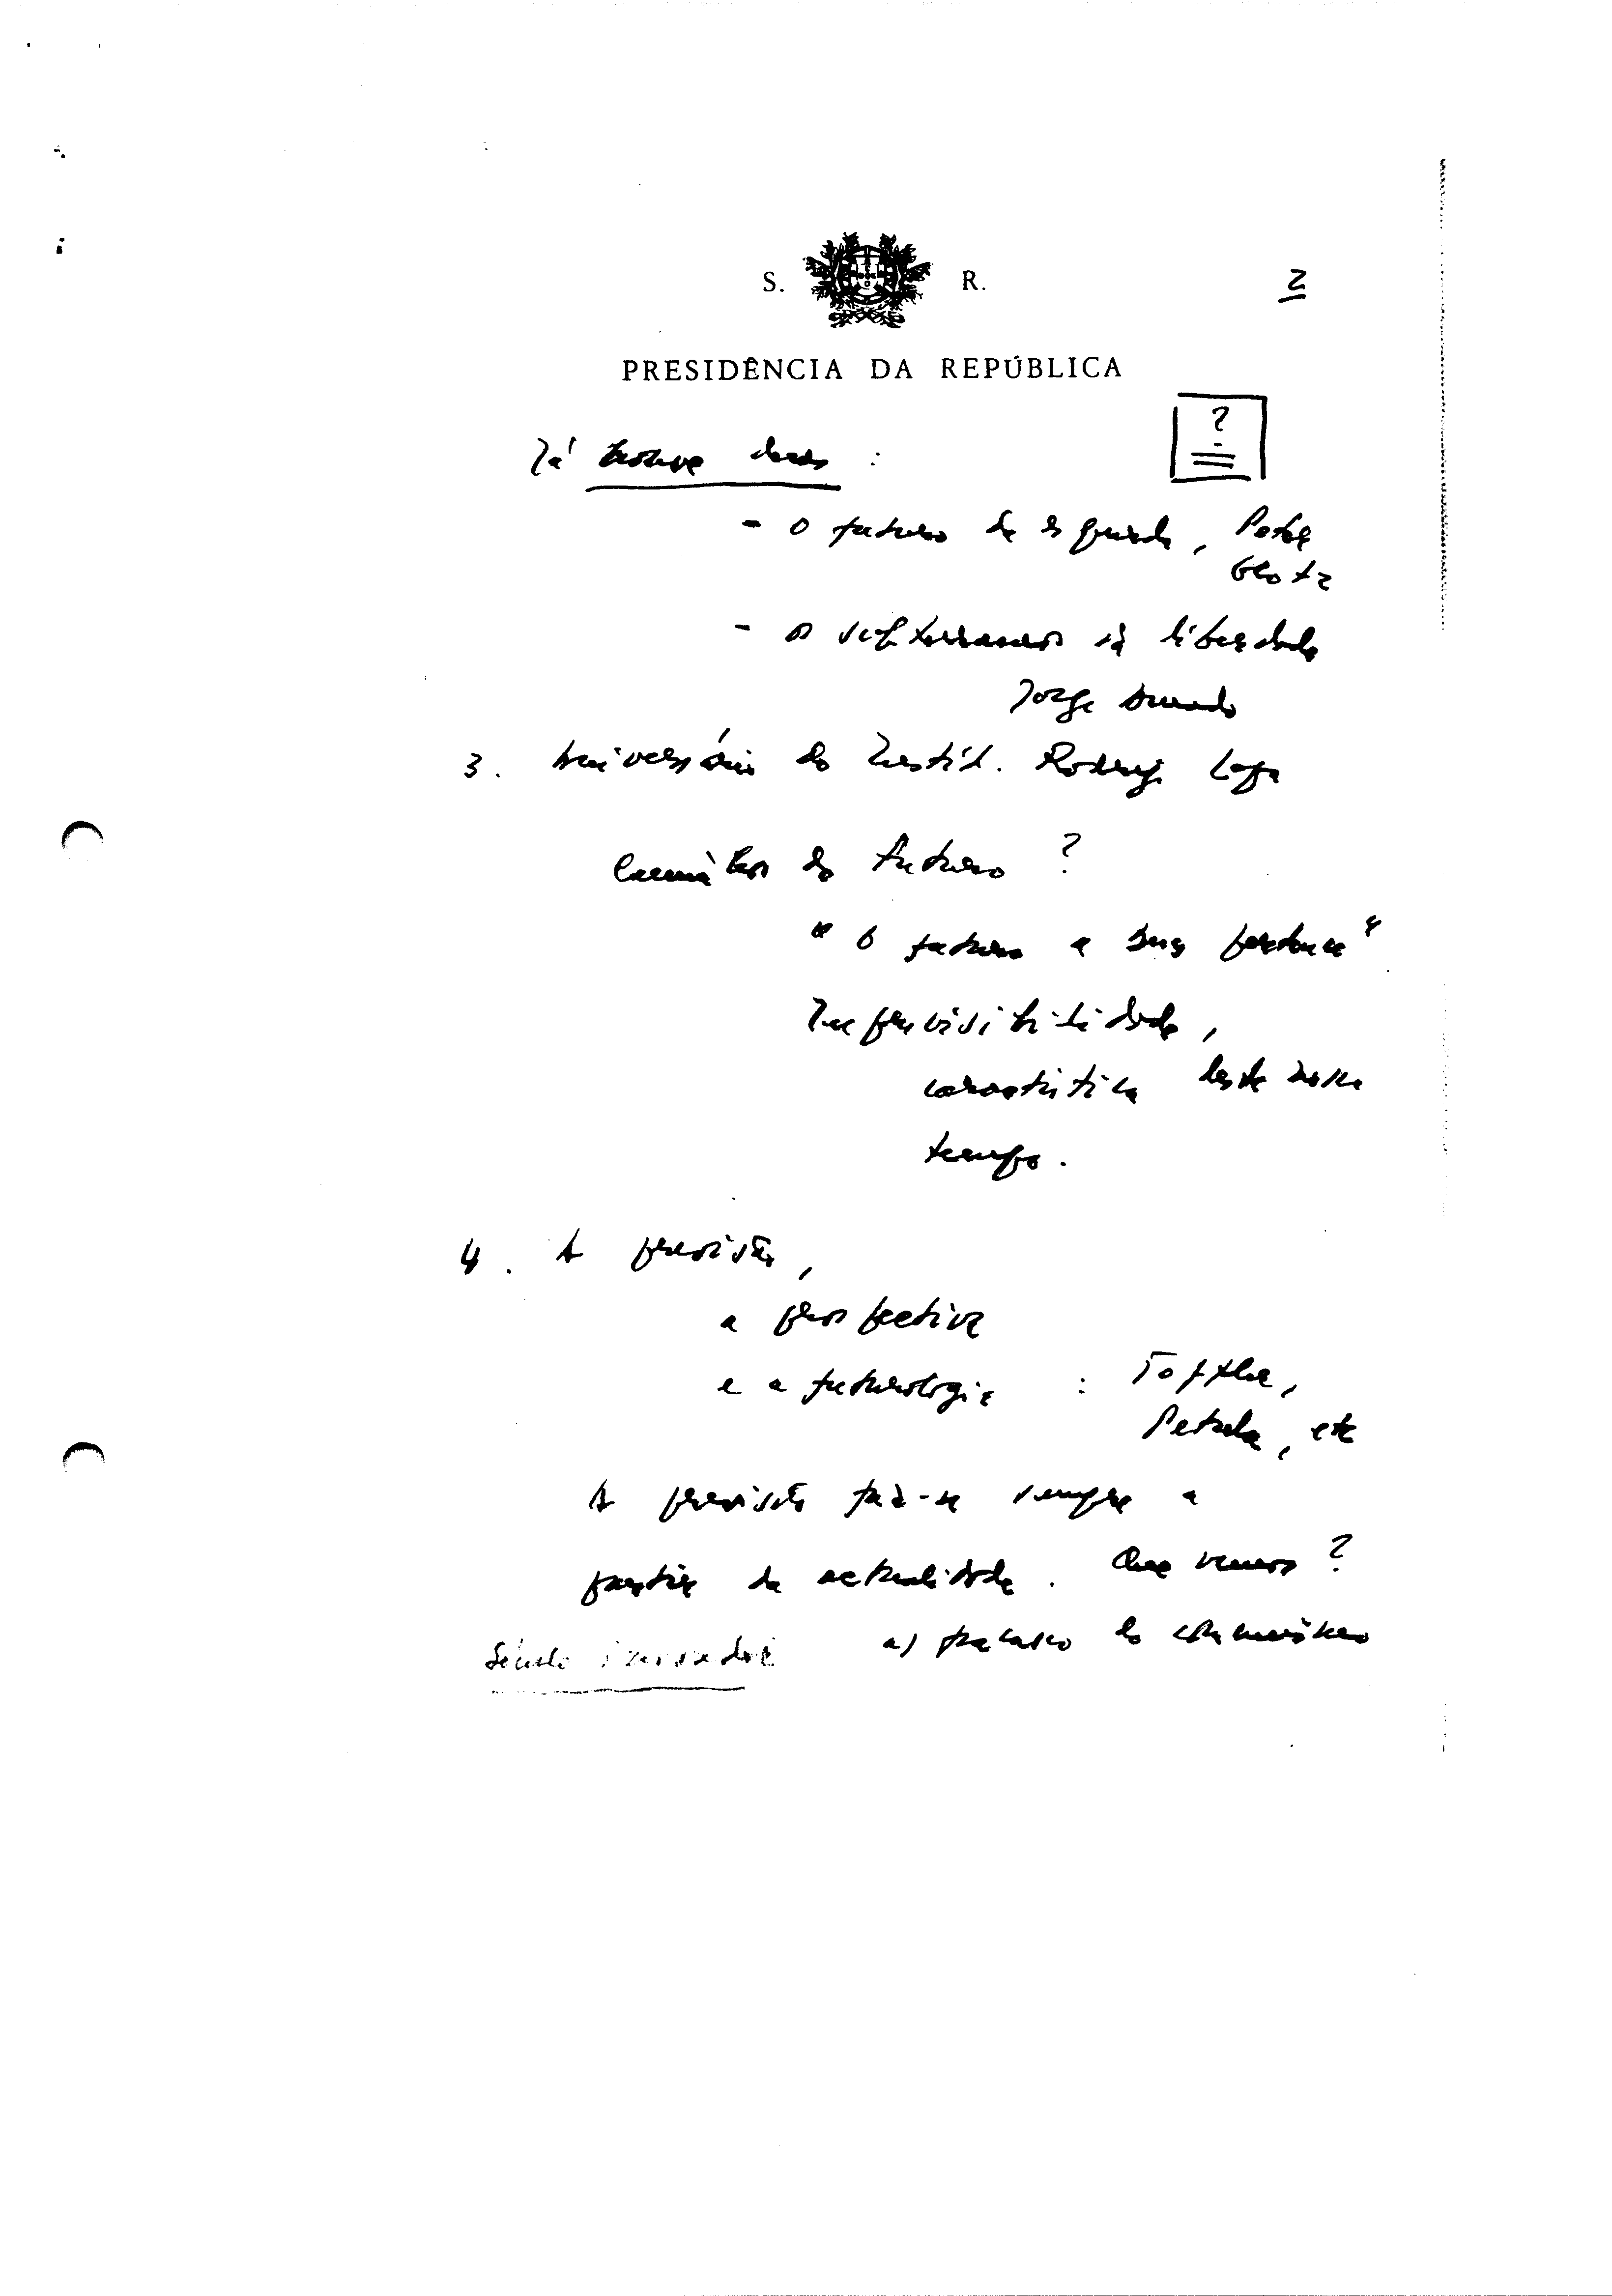 S. R.
2
PRESIDÊNCIA DA REPÚBLICA
?
Já houve duas :
- O futuro da esquerda, Peter
Glotz
- Os subterraneos da liberdade
Jorge Amado
3. Aniversário do Instit. Rodrig Lapa
Cenários do futuro ?
" O futuro a Deus pertence "
Imprevisibilidade,
caracteristica deste nosso
tempo.
4. A previsão,
a prospectiva
e a futurologia : Toffler,
Petrela, etc
A previsão faz-se sempre a
partir da actualidade. Que vemos ?
a) fracasso do comunismo
Século